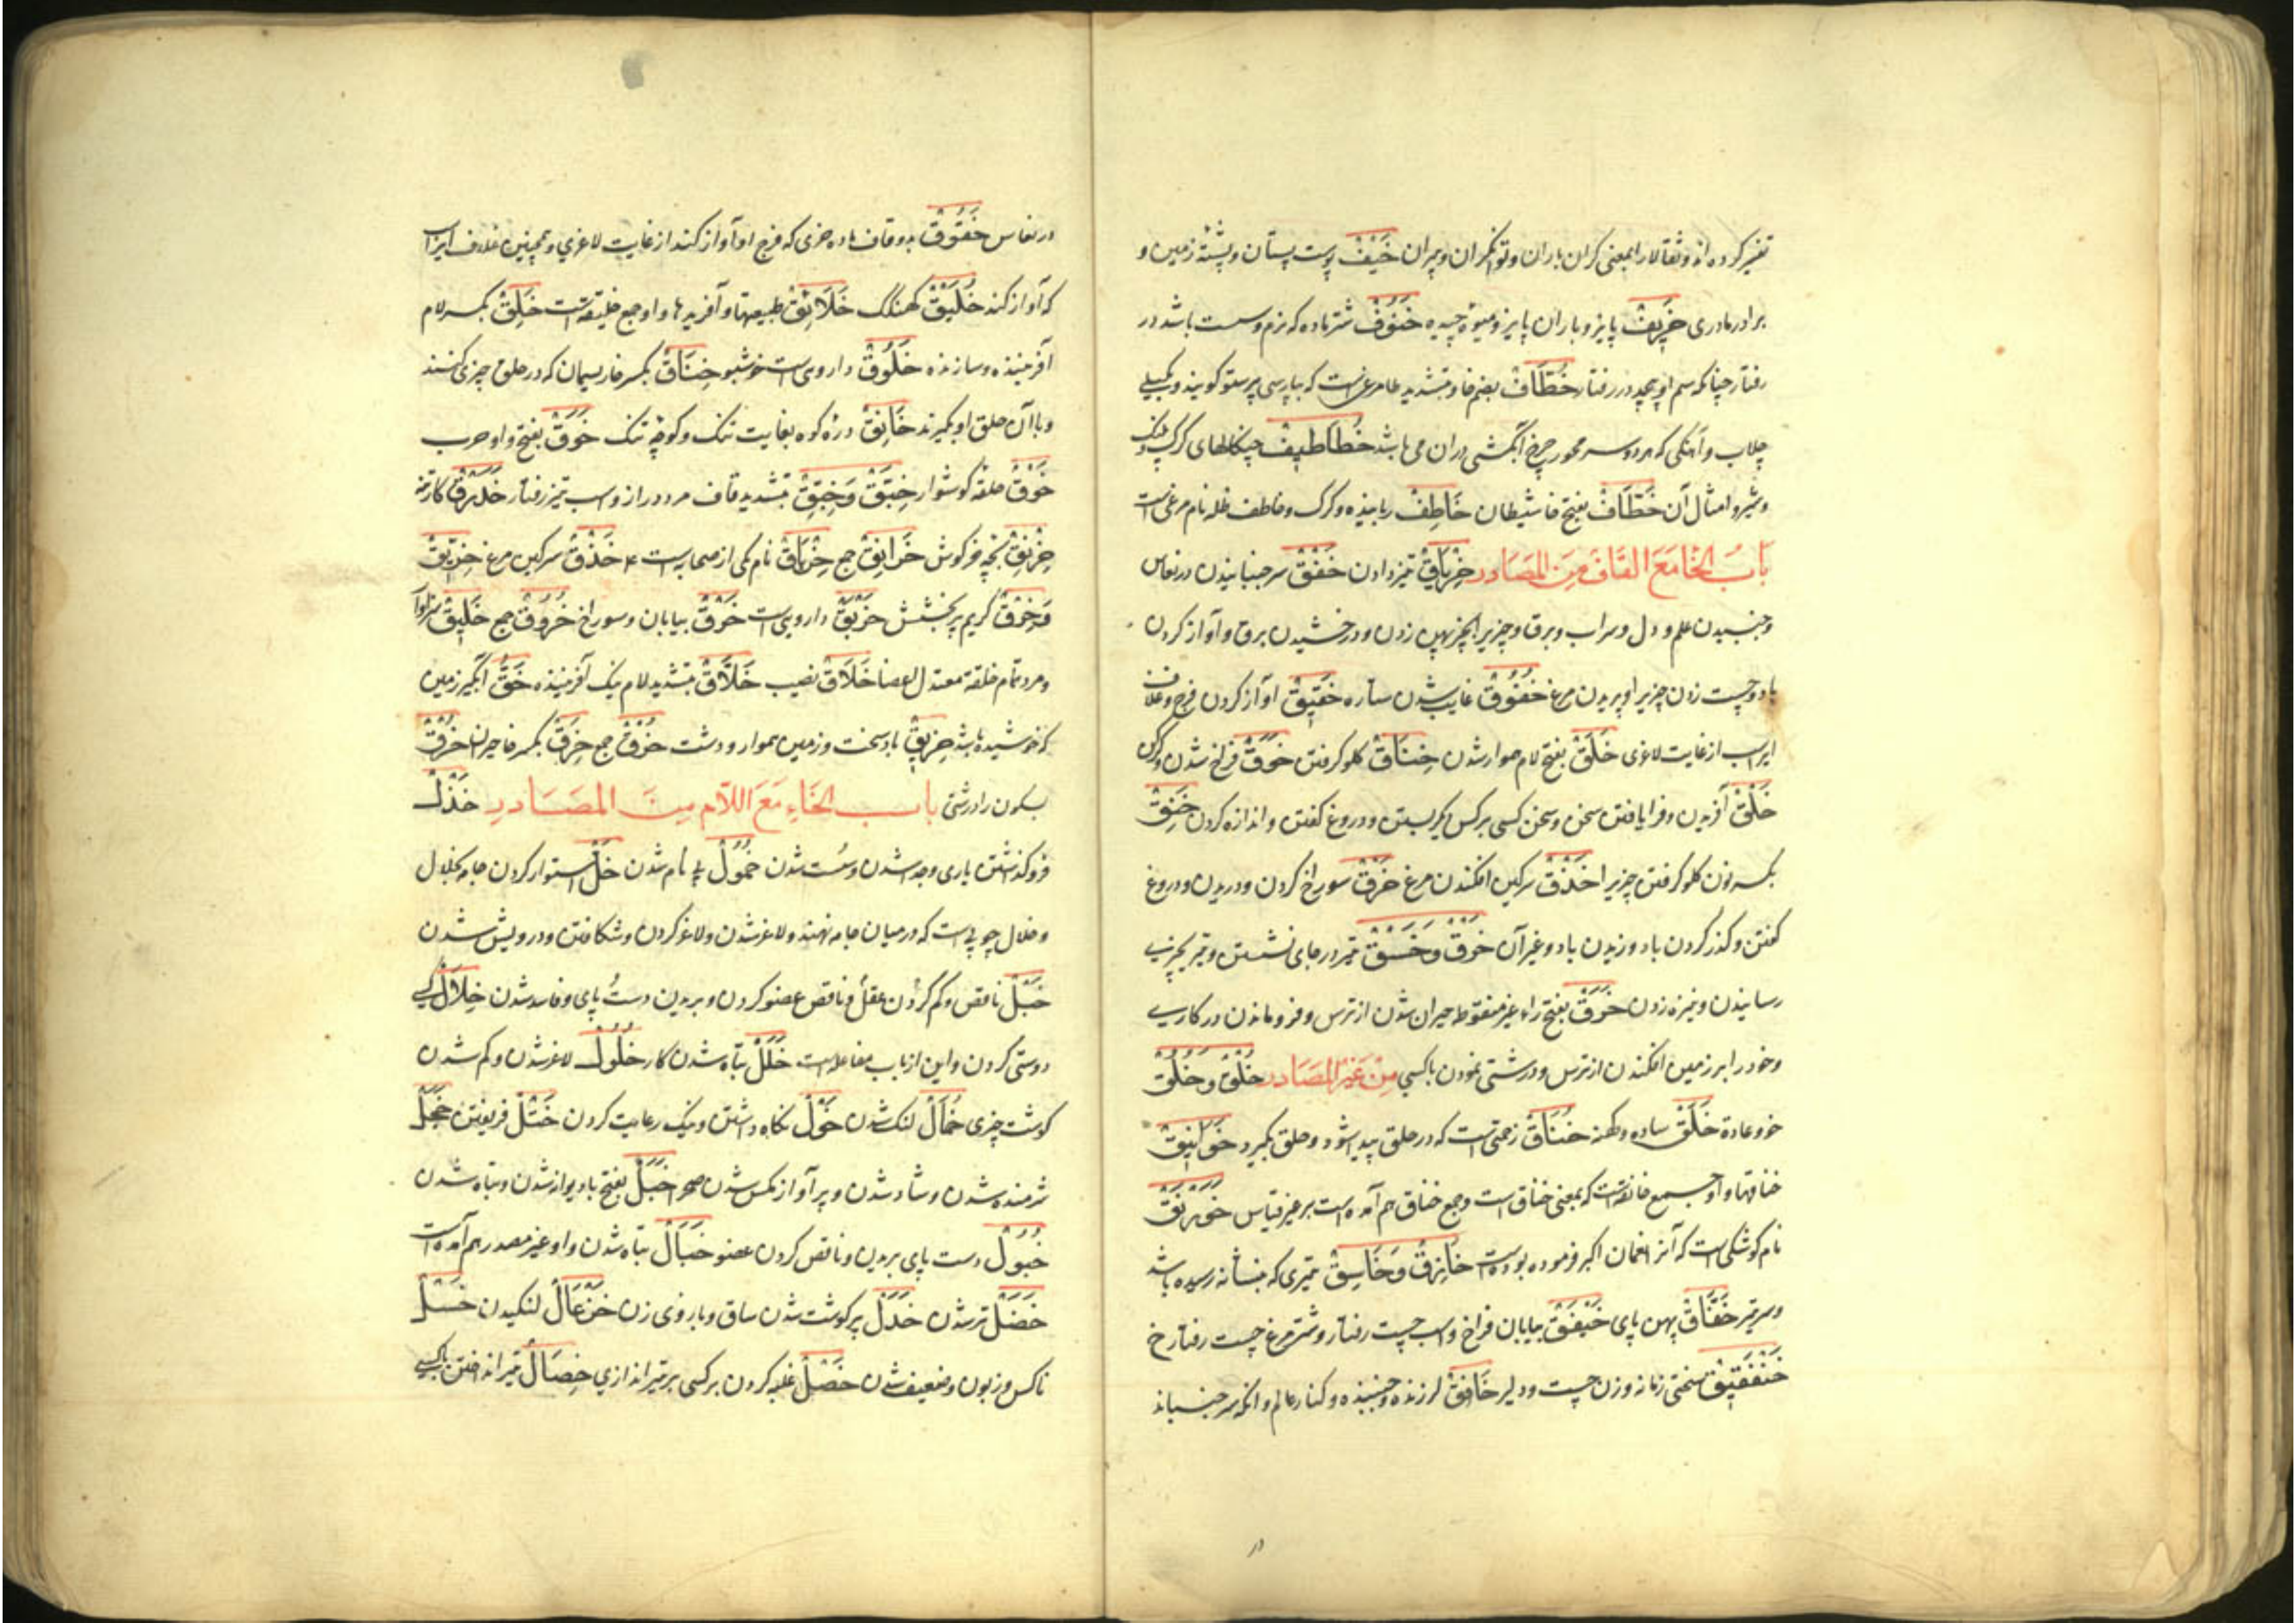 تفسیر کرده اند و ثقالا را بمعنی گران باران و توانگران و پیران خَیْفْ پوست پستان و پشتهٔ زمین و
برادر مادری خَرِیفْ پاییز و باران پاییز و میوه چیده خَنُوفْ شتر ماده که نرم و سست باشد در
رفتار چنانکه سم او بپیچد در رفتار خُطَّافْ بضم خا و تشدید طا مرغیست که بپارسی پرستو گویند و بگیلی
چلاب و آهنگی که هر دو سر محور چرخ آبکشی در آن می باشد خَطَاطِیفْ چنگالهای گرگ و پلنگ
و شیر و امثال آن خَطَّافْ بفتح خا شیطان خَاطِفْ رباینده و گرگ و خاطف ظله نام مرغی است
بَابُ الْخَا مَعَ الْقَافِ مِنَ الْمَصَادِرِ خِزْبَاقْ تیز دادن خَفْقْ سر جنبانیدن در نعاس
و جنبیدن علم و دل و سراب و برق و چیزیرا بچیز پهن زدن و درخشیدن برق و آواز کردن
باد و چست زدن چیزیرا و پریدن مرغ خُفُوقْ غایب شدن ستاره خَقِیقْ آواز کردن فرج و غلاف
ایر اسب از غایت لاغری خَلَقْ بفتح لام هموار شدن خِنَاقْ گلو گرفتن خَوَقْ فراخ شدن و گرگن
خَلْقْ آفریدن و فرا یافتن سخن و سخن کسی بر کس دیگر بستن و دروغ گفتن و اندازه کردن خَنِقْ
بکسر نون گلو گرفتن چیزیرا خَذْقْ سرگین افکندن مرغ خَرْقْ سوراخ کردن و دریدن و دروغ
گفتن و گذر کردن باد و زیدن باد و غیر آن خَزْقْ وَ خَسْقْ تیر در جای نشستن و تیر بچیزی
رسانیدن و نیزه زدن خَرَقْ بفتح راء غیر منقوطه حیران شدن از ترس و فرو ماندن در کاری
و خود را بر زمین افکندن از ترس و درشتی نمودن با کسی مِنْ غَیْرِ الْمَصَادِرِ خُلْقْ و خُلُقْ
خو و عادة خَلَقْ ساده و کهنه خُنَاقْ زحمتی است که در حلق پیدا شود و حلق بگیرد خَوَانِیقْ
خناقها و او جمع خانقست که بمعنی خناق است و جمع خناق هم آمده است بر غیر قیاس خَوَرْنَقْ
نام کوشکی است که آنرا نعمان اکبر فرموده بوده است خَازِقْ وَ خَاسِقْ تیری که بنشانه رسیده باشد
و سر تیر خَفَّاقْ پهن پای خَیْفَقْ بیابان فراخ و اسب چست رفتار و شتر مرغ چست رفتار خ
خَنْفَقِیقْ سختی زمانه و زن چست و دلیر خَافِقْ لرزنده و جنبنده و کنار عالم و آنکه سر جنباند
در
در نعاس خَقُوقْ بدو قاف ماده خری که فرج او آواز کند از غایت لاغری و همچنین غلاف ایر اسب
که آواز کند خُلَیْقْ کهنگک خَلَائِقْ طبیعتها و آفریدها و او جمع خلیقتست خَلِقْ بکسر لام
آفریننده و سازنده خَلُوقْ داروی است خوشبو خِنَاقْ بکسر خا ریسمان که در حلق چیزی کنند
و با آن حلق او بگیرند خَانِقْ درّه کوه بغایت تنگ و کوچه تنگ خَوَقْ بفتح واو جرب
خَوْقْ حلقه گوشوار خِبَقْ وَ خِبِقْ بتشدید قاف مرد دراز و اسب تیز رفتار خَدَرْنَقْ کارتنه
خِرْنِقْ بچه خرگوش خَرَانِقْ جمع خِرْبَاقْ نام یکی از صحابیست خَذْقْ سرگین مرغ خِرِّیقْ
وَ خِرْقْ کریم پر بخشش خَرْبَقْ داروی است خَرْقْ بیابان و سوراخ خُرُوقْ جمع خَلِیقْ سزاوار
و مرد تمام خلقة معتدل اعضا خَلَاقْ نصیب خَلَّاقْ بتشدید لام نیک آفریننده خَقّْ آبگیر زمین
که خوشیده باشد خَرِیقْ باد سخت و زمین هموار و دشت خُرُقْ جمع خَرِقْ بکسر خا حیران خُرْقْ
بسکون را درشتی بَابُ الْخَاءِ مَعَ اللَّامِ مِنَ الْمَصَادِرِ خَذْلْ
فرو گذاشتن یاری و جدا شدن و سست شدن خُمُولْ بی نام شدن خَلّْ استوار کردن جامه بخلال
و خلال چوبی است که در میان جامه نهند و لاغر شدن و لاغر کردن و شکافتن و درویش شدن
خَبْلْ ناقص و کم کردن عقل و ناقص عضو کردن و بریدن دست و پای و فاسد شدن خِلَالْ با کسی
دوستی کردن و این از باب مفاعله است خَلَلْ تباه شدن کار خُلُولْ لاغر شدن و کم شدن
گوشت چیزی خُمَالْ لنگ شدن خَوْلْ نگاه داشتن و نیک رعایت کردن خَتْلْ فریفتن خَجَلْ
شرمنده شدن و شاد شدن و پر آواز مگس شدن صحرا خَبَلْ بفتح با دیوانه شدن و تباه شدن
خُبُولْ دست پای بریدن و ناقص کردن عضو خَبَالْ تباه شدن و او غیر مصدر هم آمده است
خَضَلْ تر شدن خَدَلْ پر گوشت شدن ساق و بازوی زن خَزْعَالْ لنگیدن خَسْلْ
ناکس و زبون و ضعیف شدن خَصْلْ غلبه کردن بر کسی بر تیر اندازی خِصَالْ تیر انداختن با کسی